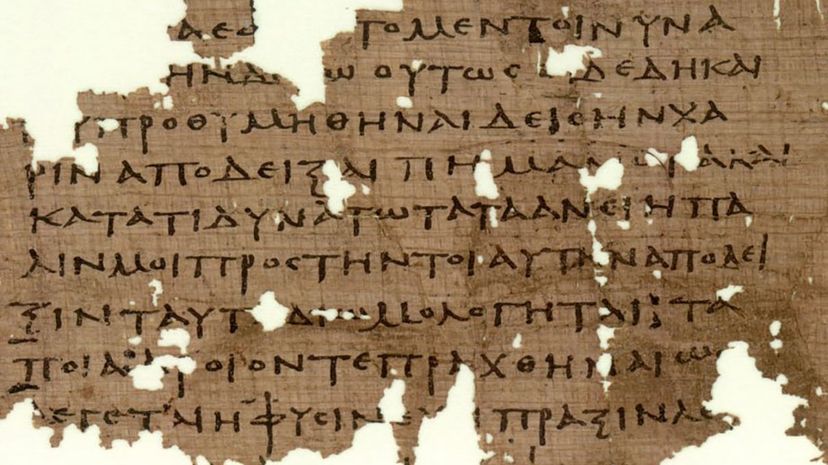 ΤΟΜΕΝΤΟΙΝΥΝΑ
ΗΝΔ Ω ΟΥΤΩϹ ΔΕΔΗΚΑΙ
ΥΠΡΟΘΥΜΗΘΗΝΑΙΔΕΙϹΗΝΧΑ
ΡΙΝΑΠΟΔΕΙΞΑΙΠΗΜΑΛ ΚΑΙ
ΚΑΤΑΤΙΔΥΝΑΤΩΤΑΤΑΑΝΕΙΗΠΑ
ΛΙΝΜΟΙΠΡΟϹΤΗΝΤΟΙΑΥΤΗΝΑΠΟΔΕΙ
ΞΙΝΤΑΥΤ ΔΙΟΜΟΛΟΓΗΤΑΙ:ΤΑ
ΠΟΙΑ ΟΙΟΝΤΕΠΡΑΧΘΗΝΑΙΩϹ
ΛΕΓΕΤΑΙΗΦΥϹΙΝ ΠΡΑΞΙΝΛΕ